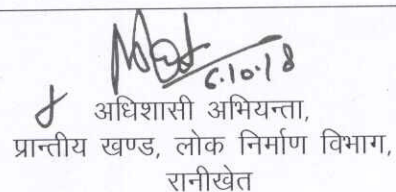 6.10.18
अधिशासी अभियन्ता,
प्रान्तीय खण्ड, लोक निर्माण विभाग,
रानीखेत